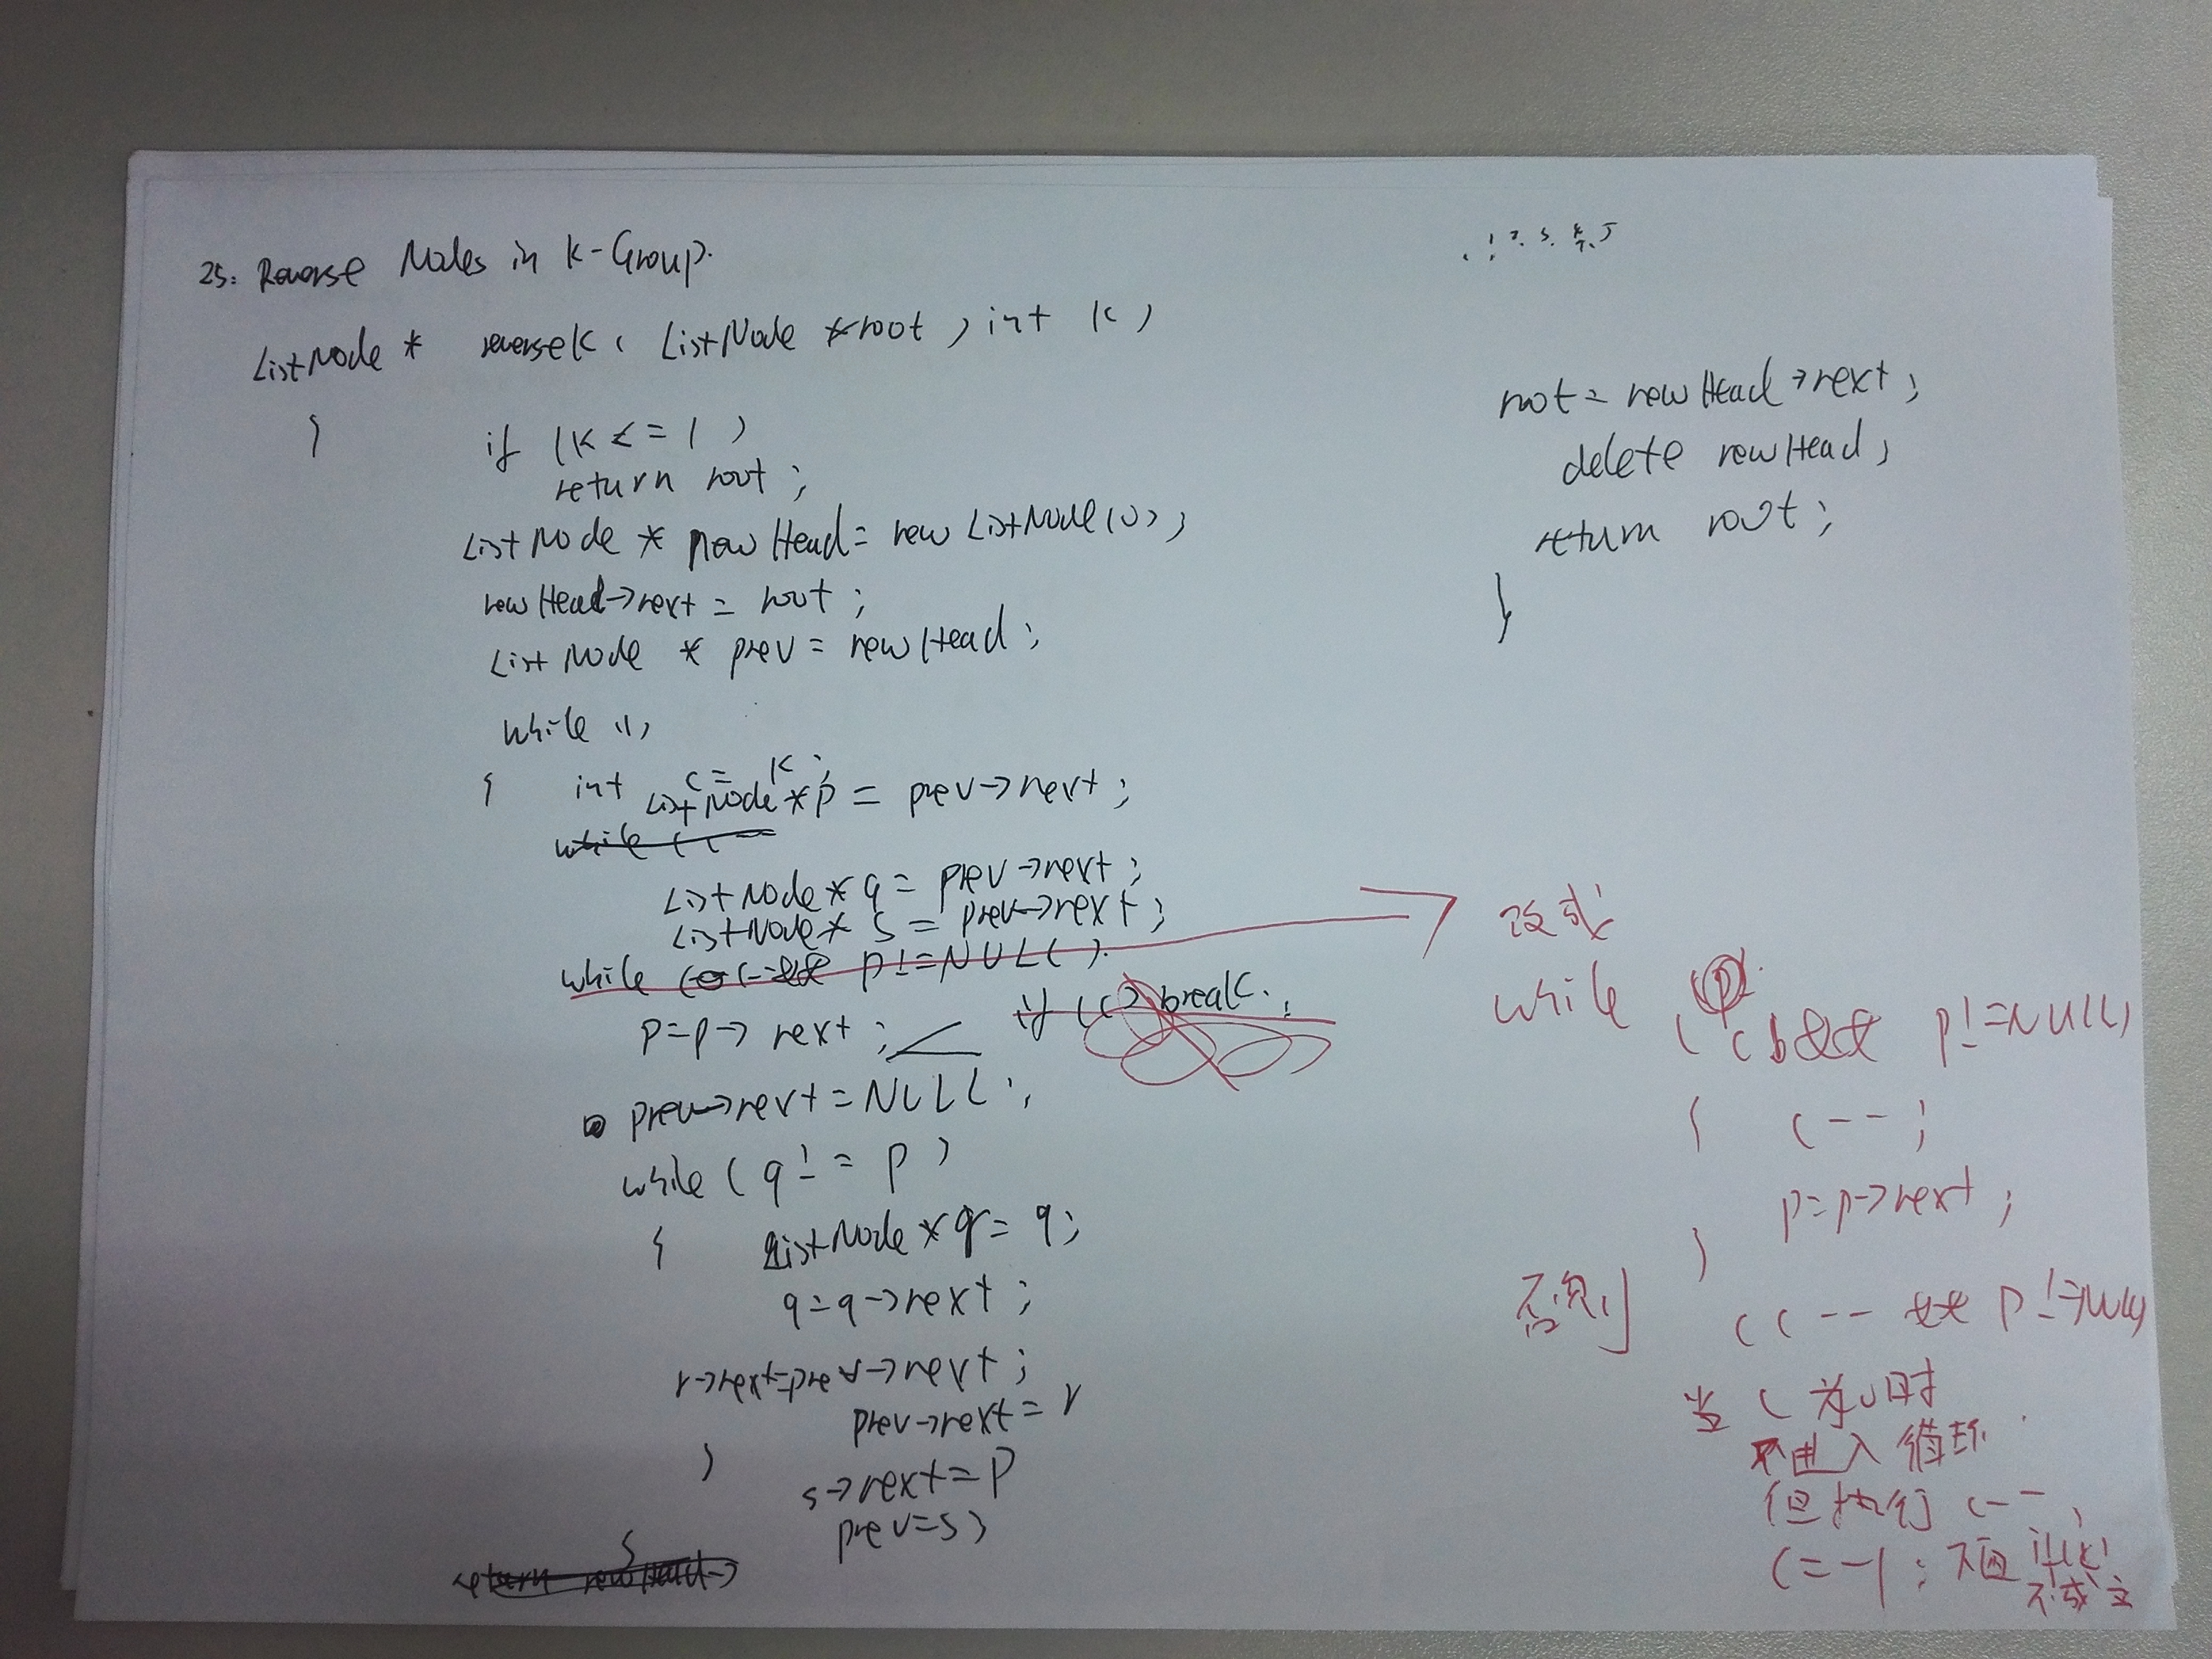 25. Reverse Nodes in k-Group.
1 2. 3. 4. 5
ListNode * reversek( ListNode *root, int k)
{
if (k <= 1)
return root;
ListNode * newHead = new ListNode(0);
newHead->next = root;
ListNode * prev = newHead;
while (1)
{ int c = k;
ListNode *p = prev->next;
while (c
ListNode *q = prev->next;
ListNode * s = prev->next;
while (c-- && p!=NULL)
if (c) break;
p=p->next;
prev->next=NULL;
while (q != p)
{ ListNode *r = q;
q=q->next;
r->next=prev->next;
prev->next=r
}
s->next=p
prev=s;
return newHead->
root = newHead->next;
delete newHead;
return root;
}
改成
while (c && p!=NULL)
{ c--;
p=p->next;
}
否则 (c-- && p!=NULL)
当 c 为0时
不进入循环
但执行 c--,
c=-1; 下面 if(c)
不成立